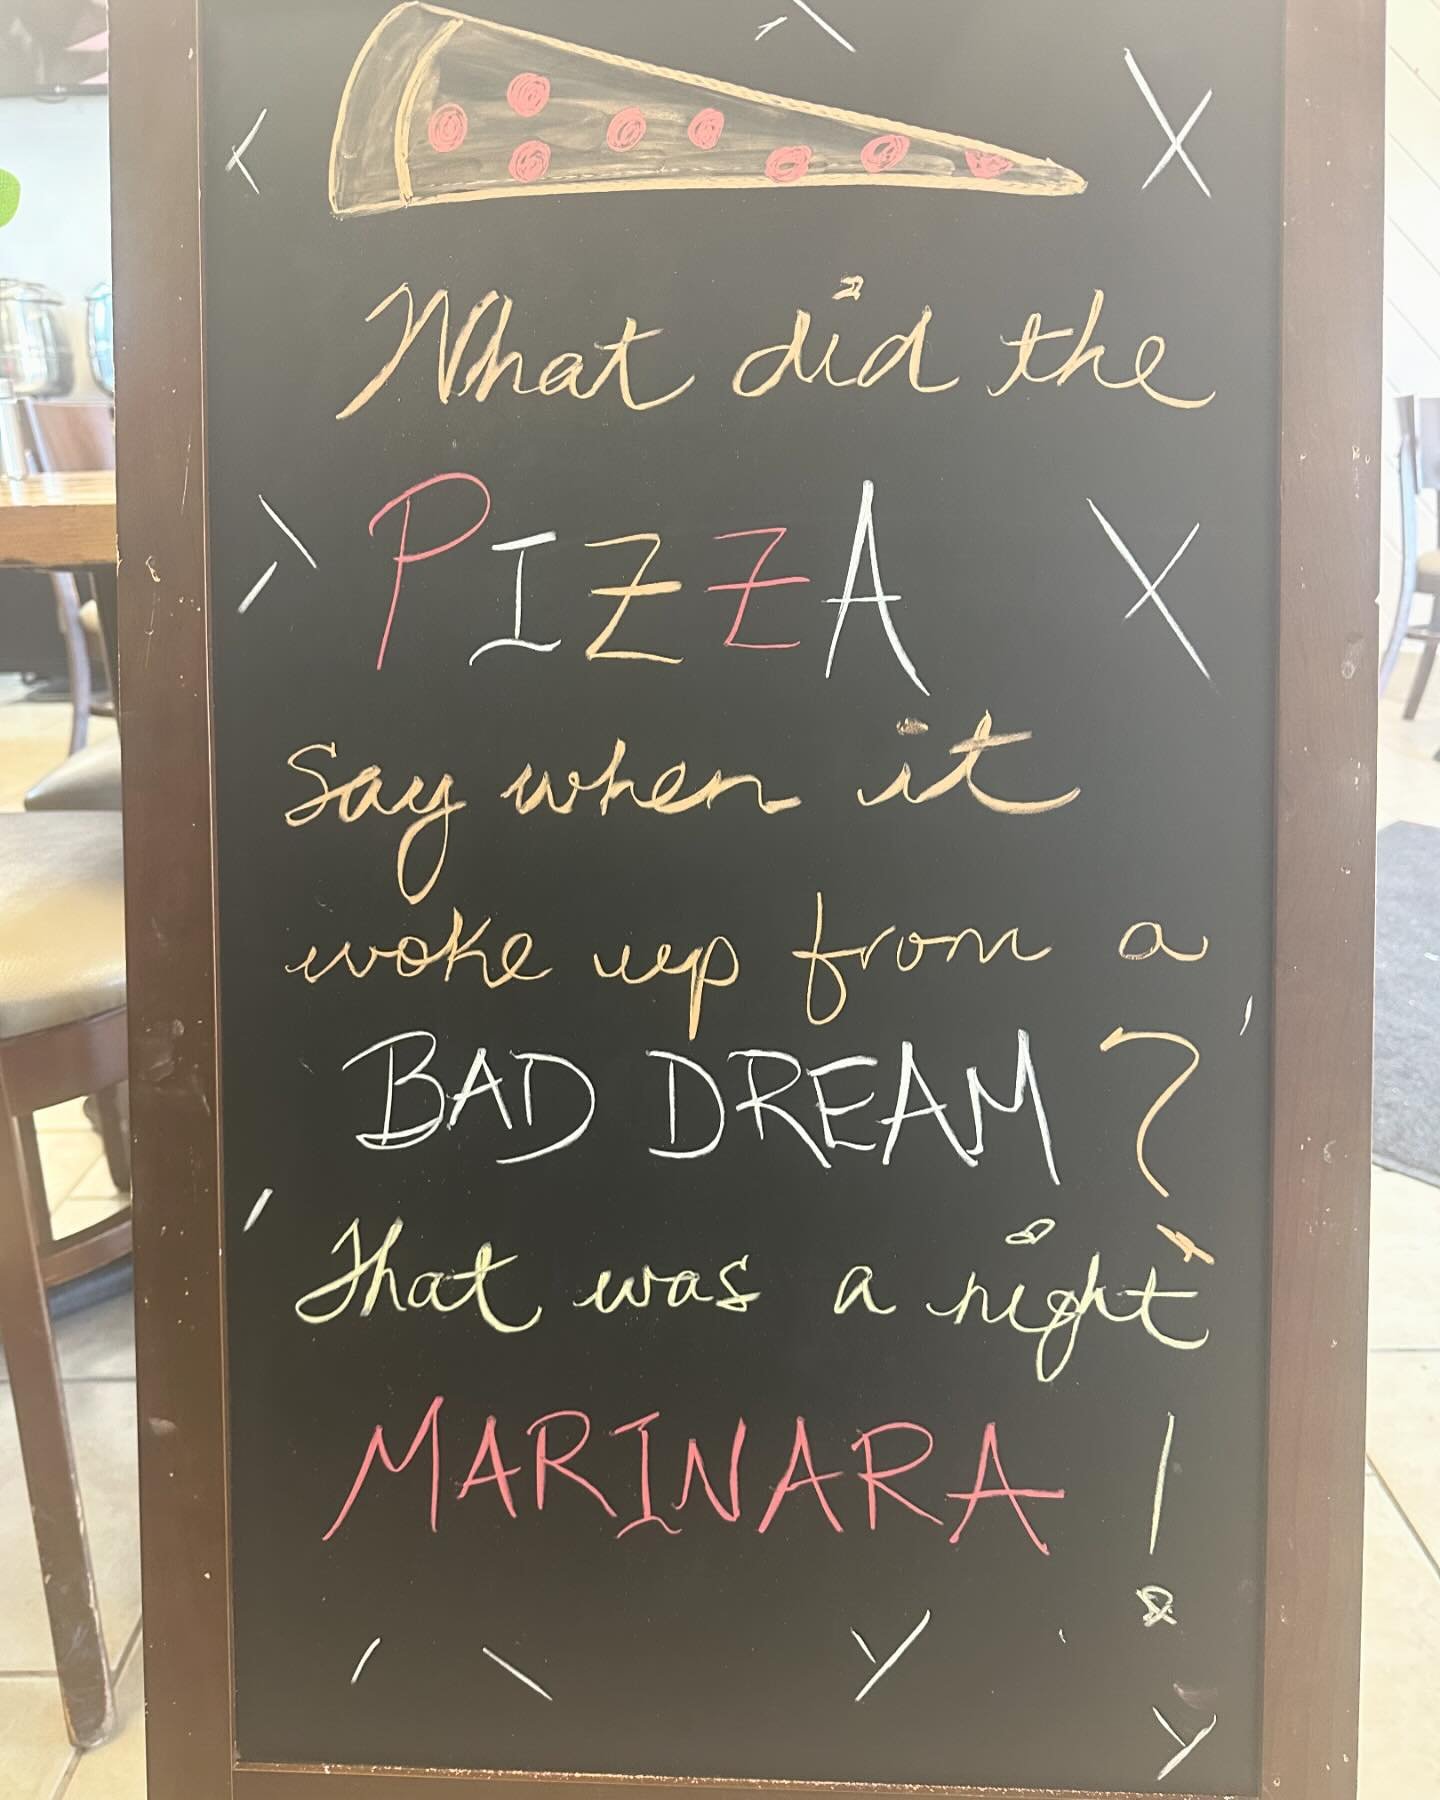 What did the
PIZZA
Say when it
woke up from a
BAD DREAM?
That was a night
MARINARA!